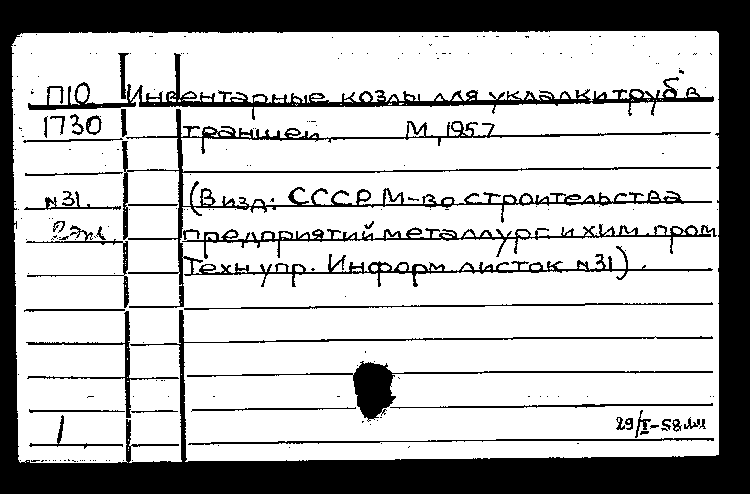 П10 Инвентарные козлы для укладки труб в
1730 траншеи. М, 1957
№31. (В изд: СССР. М-во строительства
2 экз. предприятий металлург. и хим. пром
Техн. упр. Информ. листок №31).
1 29/I-58